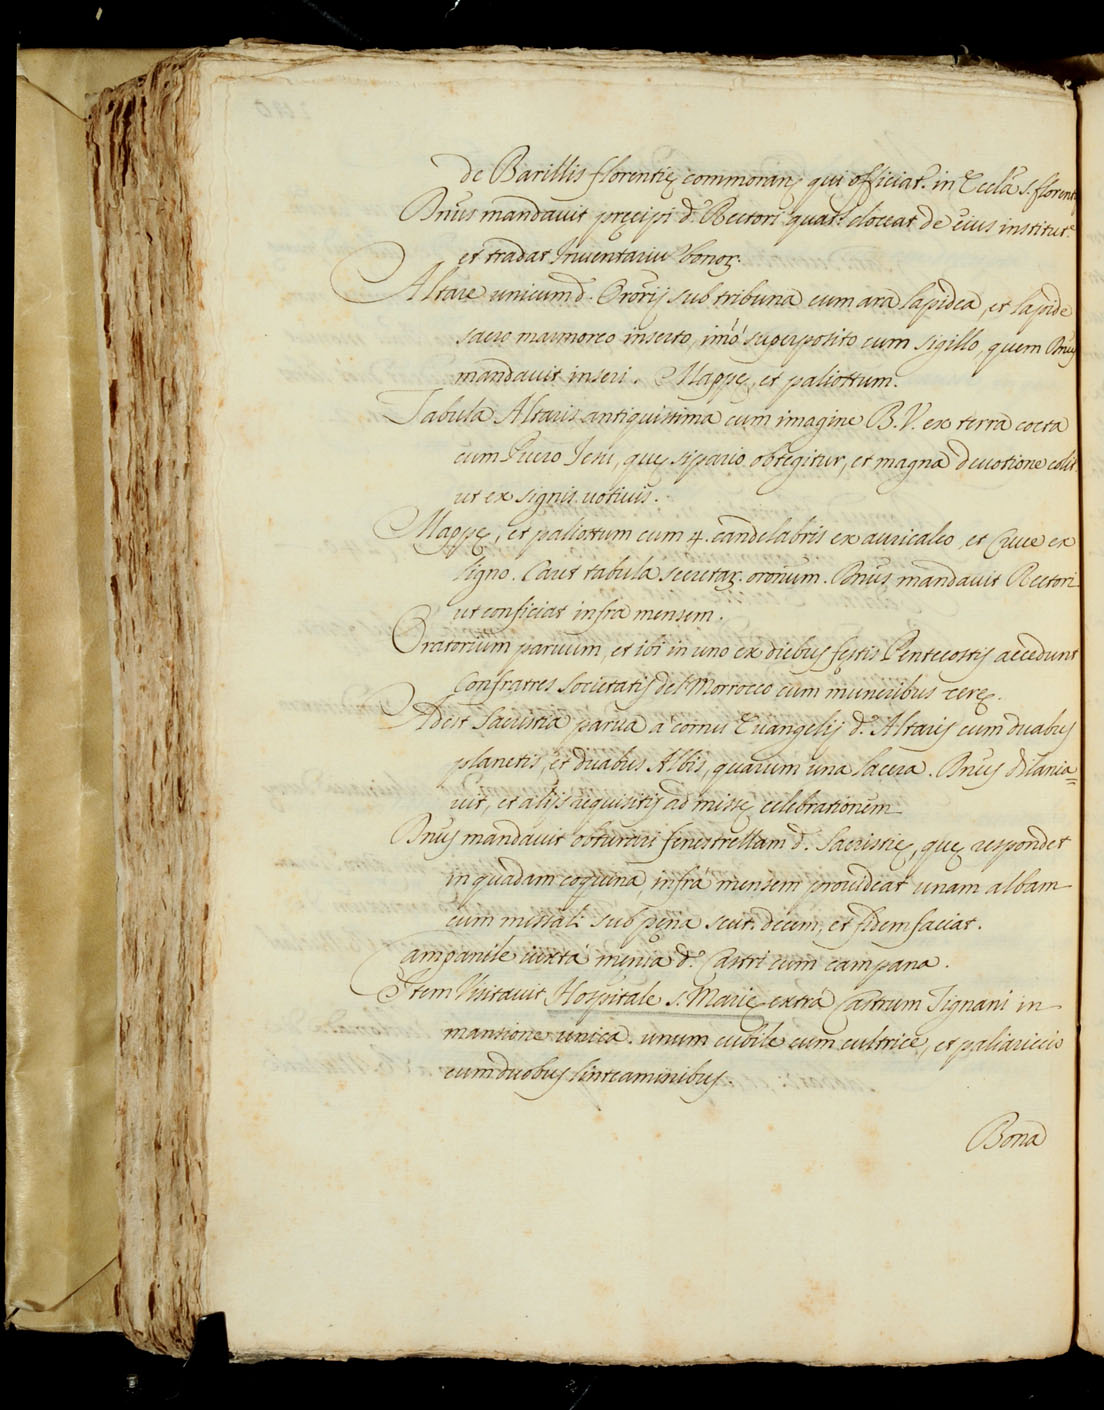 de Barillis florentię commoranẽ qui officiat.r in Eccl.a s. florent.
Bnus mandavit pręcipi d.o Rectori quat.s doceat de eius institut.e
et tradat Inventariu bonoȝ.
Altare unicum d. Ororij sub tribuna cum ara lapidea, et lapide
sacro marmoreo inserto, imò superposito cum sigillo, quem Bnus
mandavit inseri. Mappę, et paliottum.
Tabula Altaris antiquissima cum imagine B.V. ex terra cocta
cum Puero Jesu, quę sipario obtegitur, et magna devotione colit
ut ex signis votivis.
Mappę, et paliottum cum 4. candelabris ex auricalco, et Cruce ex
ligno. Caret tabula secretaȝ. ororium. Bnus mandavit Rectori
ut conficiat infra mensem.
Oratorium parvum, et ibi in uno ex diebus festis Pentecostis accedunt
Confratres Societatis del Morrocco cum muneribus cerę.
Adest Sacristia parva a cornu Evangelij d.i Altaris cum duabus
planetis, et duabus Albis, quarum una lacera. Bnus dilania=
vit, et alijs requisitis ad missę celebrationem
Bnus mandavit obturari fenestrellam d.ę Sacristię, quę respondet
in quadam coquina, infrà mensem provideat unam albam
cum missali sub pęna scut. decem, et fidem faciat.
Campanile iuxtà męnia d.i Castri cum campana.
Item Visitavit Hospitale s. Marię extrà Castrum Tignani in
mansione unica. unum cubile cum cultrice, et paliariccio
cum duobus linteaminibus.
Bona